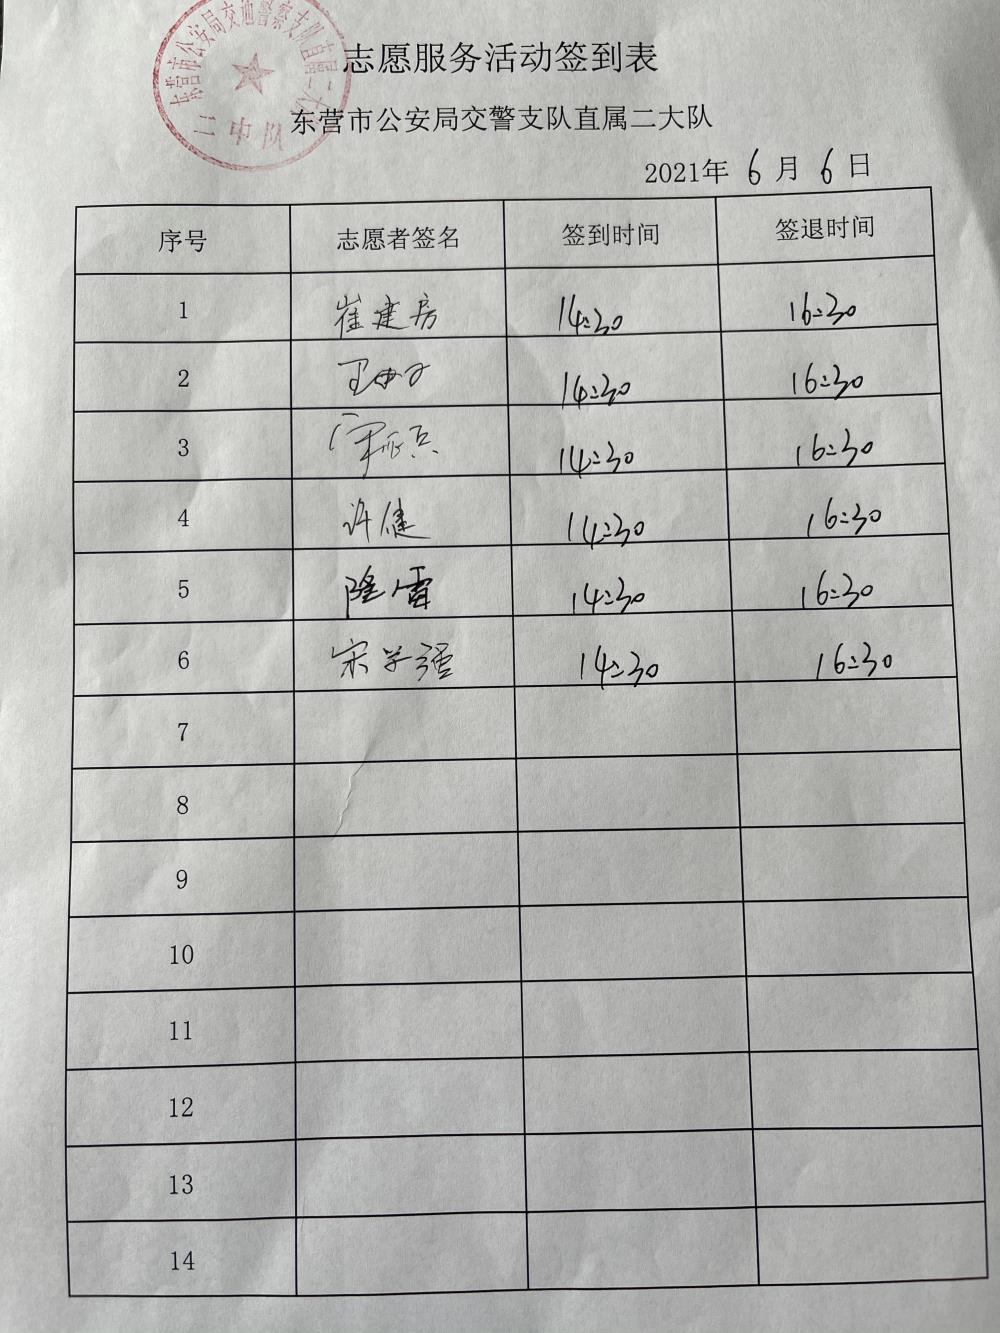 东营市公安局交通警察支队直属二大队
二中队
志愿服务活动签到表
东营市公安局交警支队直属二大队
2021年 6 月 6 日
序号 志愿者签名 签到时间 签退时间
1 崔建房 14:30 16:30
2 14:30 16:30
3 14:30 16:30
4 许健 14:30 16:30
5 隆雷 14:30 16:30
6 宋学强 14:30 16:30
7
8
9
10
11
12
13
14